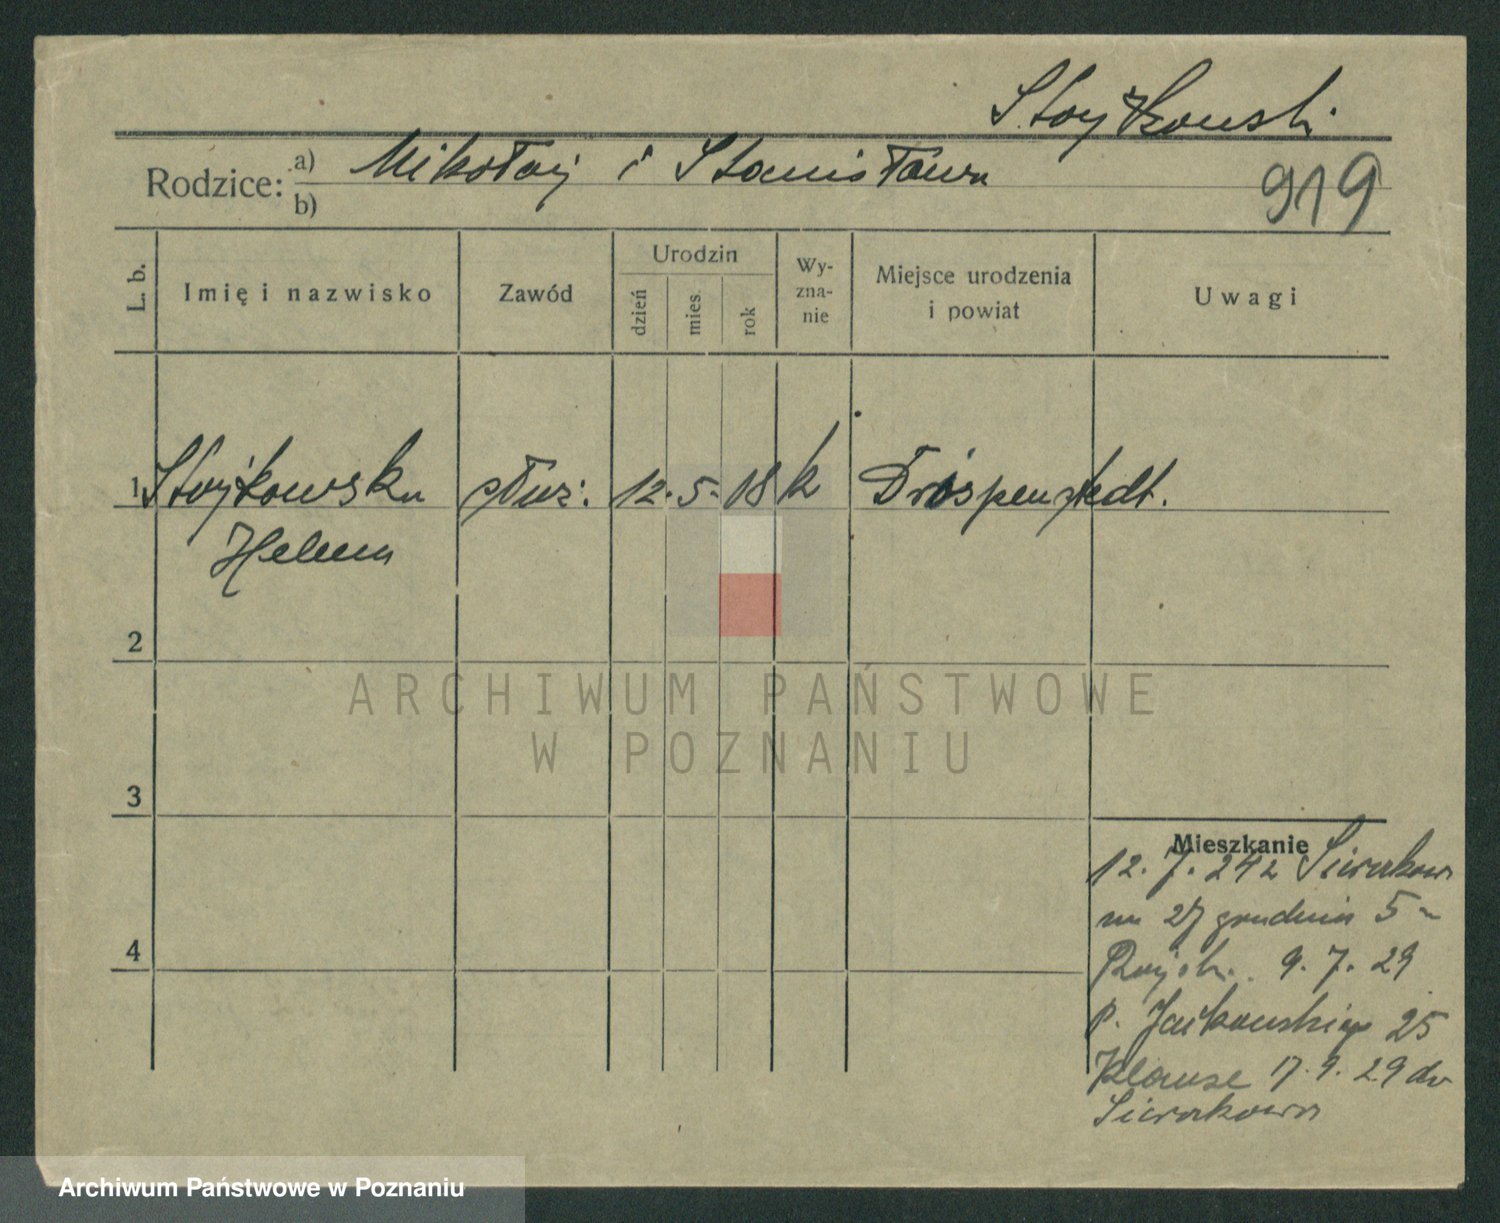 Stoykowski
Rodzice: a) Mikołaj i Stanisława
b)
919
L. b.
Imię i nazwisko
Zawód
Urodzin
dzień
mies.
rok
Wy-
zna-
nie
Miejsce urodzenia
i powiat
Uwagi
1 Stoykowska służ. 12. 5. 18 k Drospenstedt.
Helena
2
3
4
ARCHIWUM PAŃSTWOWE
W POZNANIU
Mieszkanie
12. 7. 24 z Sierakowa
27 grudnia 5
9. 7. 29
P. Jackowskiego 25
Klause 17. 9. 29 do
Sierakowa
Archiwum Państwowe w Poznaniu